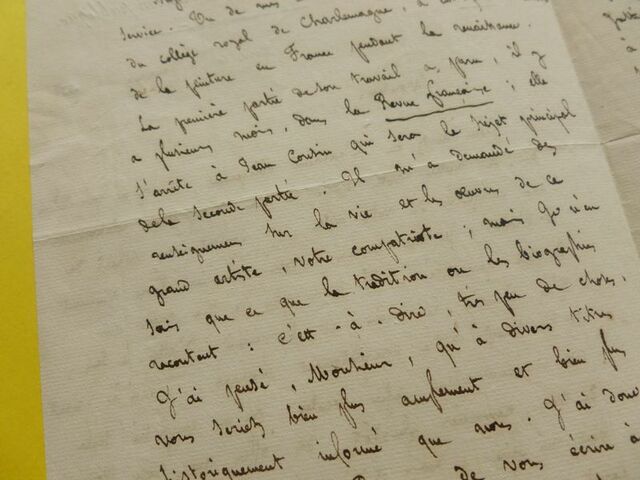 service. Un de mes
du collège royal de Charlemagne, a
de la peinture en France pendant la renaissance.
La première partie de son travail a paru, il y
a plusieurs mois, dans la Revue française ; elle
s'arrête à Jean Cousin qui sera le sujet principal
de la seconde partie. Il m'a demandé des
renseignemens sur la vie et les œuvres de ce
grand artiste, votre compatriote ; mais je n'en
sais que ce que la tradition ou les biographies
racontent : c'est-à-dire, très peu de choses.
J'ai pensé, Monsieur, qu'à divers titres
vous seriez bien plus amplement et bien plus
historiquement informé que nous. J'ai donc
de vous écrire à